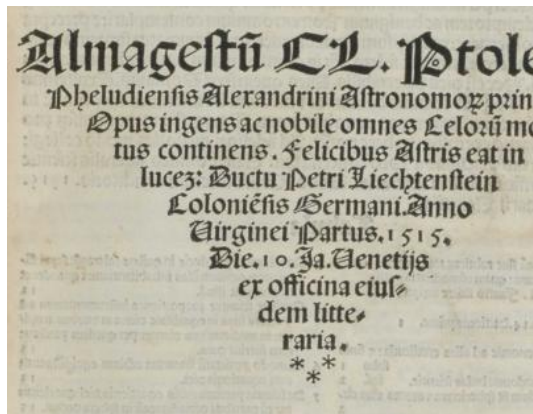 Almagestū CL. Ptole
Pheludiensis Alexandrini Astronomoꝝ prin
Opus ingens ac nobile omnes Celorū mo
tus continens. Felicibus Astris eat in
lucez: Ductu Petri Liechtenstein
Coloniēsis Germani. Anno
Virginei Partus. 1515.
Die. 10. Ja. Venetijs
ex officina eius⸗
dem litte⸗
raria.
* *
*